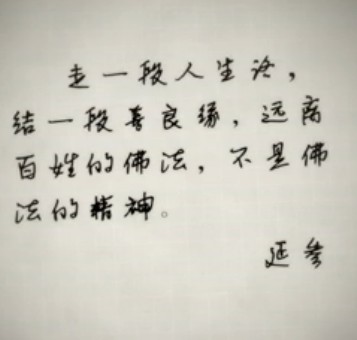 走一段人生路，
结一段善良缘，远离
百姓的佛法，不是佛
法的精神。
延参